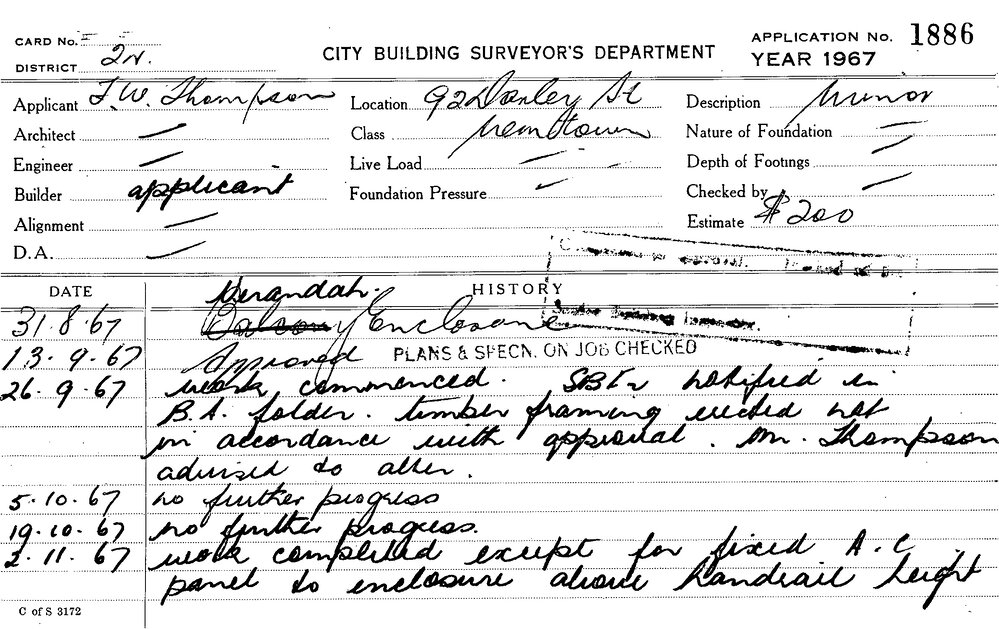 CARD No.
DISTRICT 2N.
CITY BUILDING SURVEYOR'S DEPARTMENT
APPLICATION No. 1886
YEAR 1967
Applicant F.W. Thompson
Location 92 Darley St
Description Minor
Architect —
Class Newtown
Nature of Foundation —
Engineer —
Live Load —
Depth of Footings —
Builder applicant
Foundation Pressure
Checked by —
Alignment —
Estimate $200
D.A. —
DATE
HISTORY
Verandah.
31.8.67 Balcony Enclosure
13.9.67 Approved PLANS & SPECN. ON JOB CHECKED
26.9.67 work commenced. notified in
B.A. folder. timber framing erected not
in accordance with approval. Mr. Thompson
advised to alter.
5.10.67 no further progress
19.10.67 no further progress.
2.11.67 work completed except for fixed A.C.
panel to enclosure above handrail height
C of S 3172